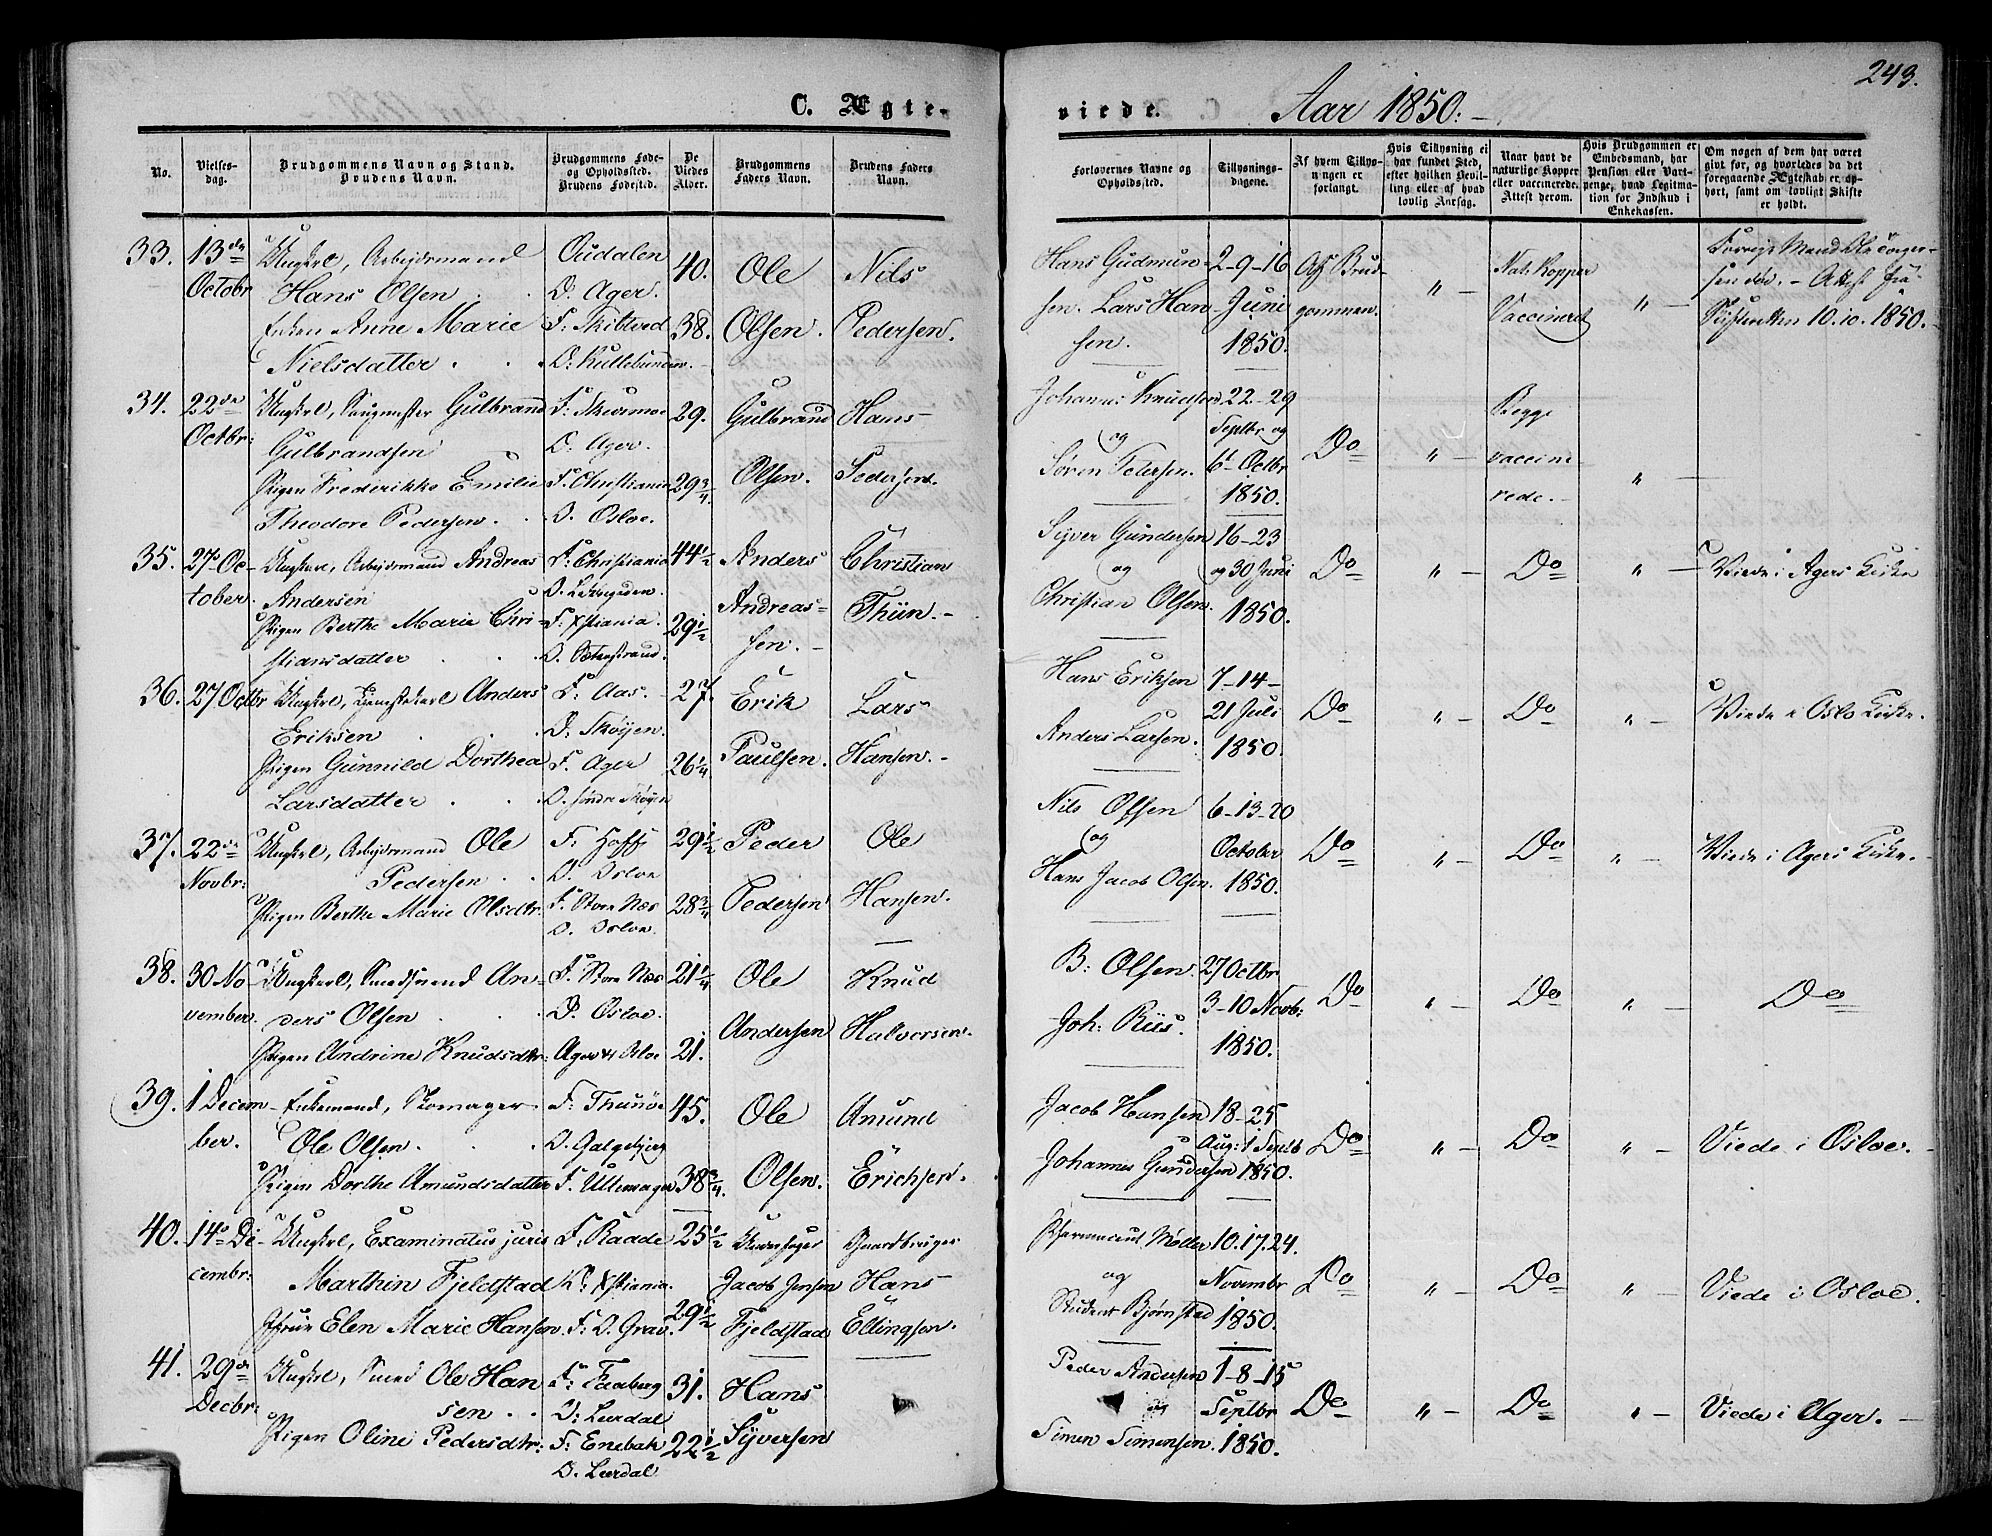 243.
C. Ægte-
viede.
Aar 1850.
No.
Vielses-
dag.
Brudgommens Navn og Stand.
Brudens Navn.
Brudgommens Føde-
og Opholdssted.
Brudens Fødested.
De
Viedes
Alder.
Brudgommens
Faders Navn.
Brudens Faders
Navn.
Forlovernes Navne og
Opholdssted.
Tillysnings-
dagene.
Af hvem Tillys-
ningen er
forlangt.
Hvis Tillysning ei
har fundet Sted,
efter hvilken Bevil-
ling eller af hvad
lovlig Aarsag.
Naar havt de
naturlige Kopper
eller vaccinerede.
Attest derom.
Hvis Brudgommen er
Embedsmand, har
Pension eller Vart-
penge, hvad Legitima-
tion for Indskud i
Enkekassen.
Om nogen af dem har været
givt før, og hvorledes da det
foregaaende Ægteskab er op-
hørt, samt om lovligt Skifte
er holdt.
33. 13de Octobr
Ungkarl, Arbejdsmand
Hans Olsen
Enken Anne Marie
Nielsdatter
Oudalen
O. Ager.
40.
38.
Ole
Olsen.
Nils
Pedersen.
Hans Gudmun-
sen. Lars Han-
sen.
2-9-16
Juni
1850.
Af Brud-
gommen.
" -
Nat: Kopper
Vaccineret
" -
10.10.1850.
34. 22de Octbr:
Ungkarl, Gulbrand
Gulbrandsen
Pigen Frederikke Emilie
Theodore Pedersen.
O. Ager.
F. Christiania
O. Osloe.
29.
29 3/4
Gulbrand
Olsen.
Hans
Pedersen.
Johannes Knudsen
og
Søren Petersen.
22-29
Septbr og
6t Octbr
1850.
Do
" -
Begge
vaccine
rede.
" -
35. 27 Oc-
tober.
Ungkarl, Arbejdsmand Andreas
Andersen
Pigen Berthe Marie Chri-
stiansdatter
F: Christiania
F. Xstiania.
44 1/2
29 1/2
Anders
Andreas=
sen.
Christian
Thün.
Syver Gundersen
og
Christian Olsen.
16-23
og 30 Juni
1850.
Do
" -
Do
" -
Viede i Agers Kirke
36. 27 Octbr
Ungkarl, Anders
Eriksen
Pigen Gunnild Dorthea
Larsdatter
F. Aas.
O. Skøyen.
F. Ager
O. søndre Skøyen
27.
26 1/4
Erik
Paulsen.
Lars
Hansen.
Hans Eriksen
Anders Larsen.
7-14-
21 Juli
1850.
Do
" -
Do
" -
Viede i Oslo Kirke.
37. 22de Novbr:
Ungkarl, Arbejdsmand Ole
Pedersen
Pigen Berthe Marie Olsdtr.
F: Hoff
O. Osloe
F. Store Næs
O. Osloe.
29 1/2
28 3/4
Peder
Pedersen
Ole
Hansen.
Nils Olsen
og
Hans Jacob Olsen.
6-13-20
October
1850.
Do
" -
Do
" -
Viede i Agers Kirke.
38. 30 No-
vember.
Ungkarl, Smedsvend An-
ders Olsen
Pigen Andrine Knudsdtr:
F. Store Næs
O. Osloe.
21 1/4
21.
Ole
Andersen
Knud
Halvorsen.
B: Olsen.
Joh: Riis.
27 Octbr
3-10 Novb:
1850.
Do
" -
Do
" -
Do
39. 1 Decem-
ber.
Enkemand, Skomager
Ole Olsen.
Pigen Dorthe Amundsdatter
O. Galgebjerg
F. Ullensager
45.
38 3/4.
Ole
Olsen.
Amund
Erichsen.
Jacob Hansen
Johannes Gundersen
18-25
Aug: 1 Septb
1850.
Do
" -
Do
" -
Viede i Osloe.
40. 14 De-
cembr:
Ungkarl, Examinatus juris
Marthin Fjeldstad
Jfrue Elen Marie Hansen.
F. Raade
O. Xstiania.
F: O. Grav.
25 1/2
29 1/2
Jacob Jensen
Fjeldstad
Gaardbruger
Hans
Ellingsen.
Pharmaceut Møller
og
Student Bjørnstad
10.17.24.
Novembr
1850.
Do
" -
Do
" -
Viede i Osloe.
41. 29de Decbr:
Ungkarl, Smed Ole Han
sen
Pigen Oline Pedersdtr:
F: Faaberg
O: Lurdal
F: Enebak
O. Lurdal
31.
22 1/2
Hans
Syversen
Peder Andersen
og
Simen Simensen.
1-8-15
Septbr
1850.
Do
" -
Do
" -
Viede i Ager.